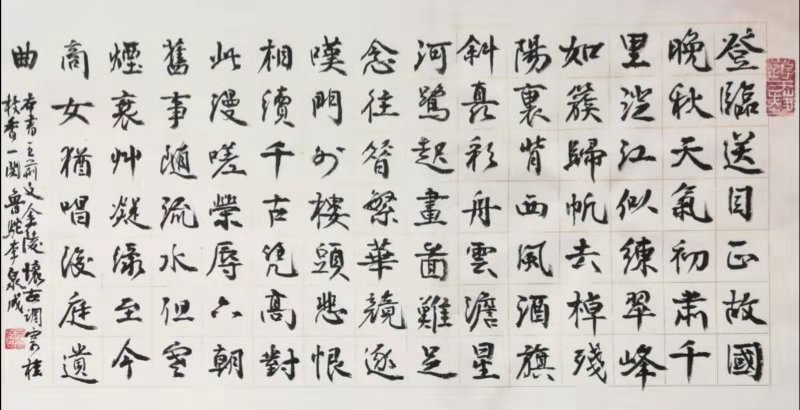 登臨送目正故國
晚秋天氣初肅千
里澄江似練翠峰
如簇歸帆去棹殘
陽裏背西風酒旗
斜矗彩舟雲澹星
河鷺起畫圖難足
念往昔繁華競逐
嘆門外樓頭悲恨
相續千古凭高對
此漫嗟榮辱六朝
舊事隨流水但寒
煙衰艸凝綠至今
商女猶唱後庭遺
曲
書王文金陵懷古調寄桂
枝香一闋魯李泉成